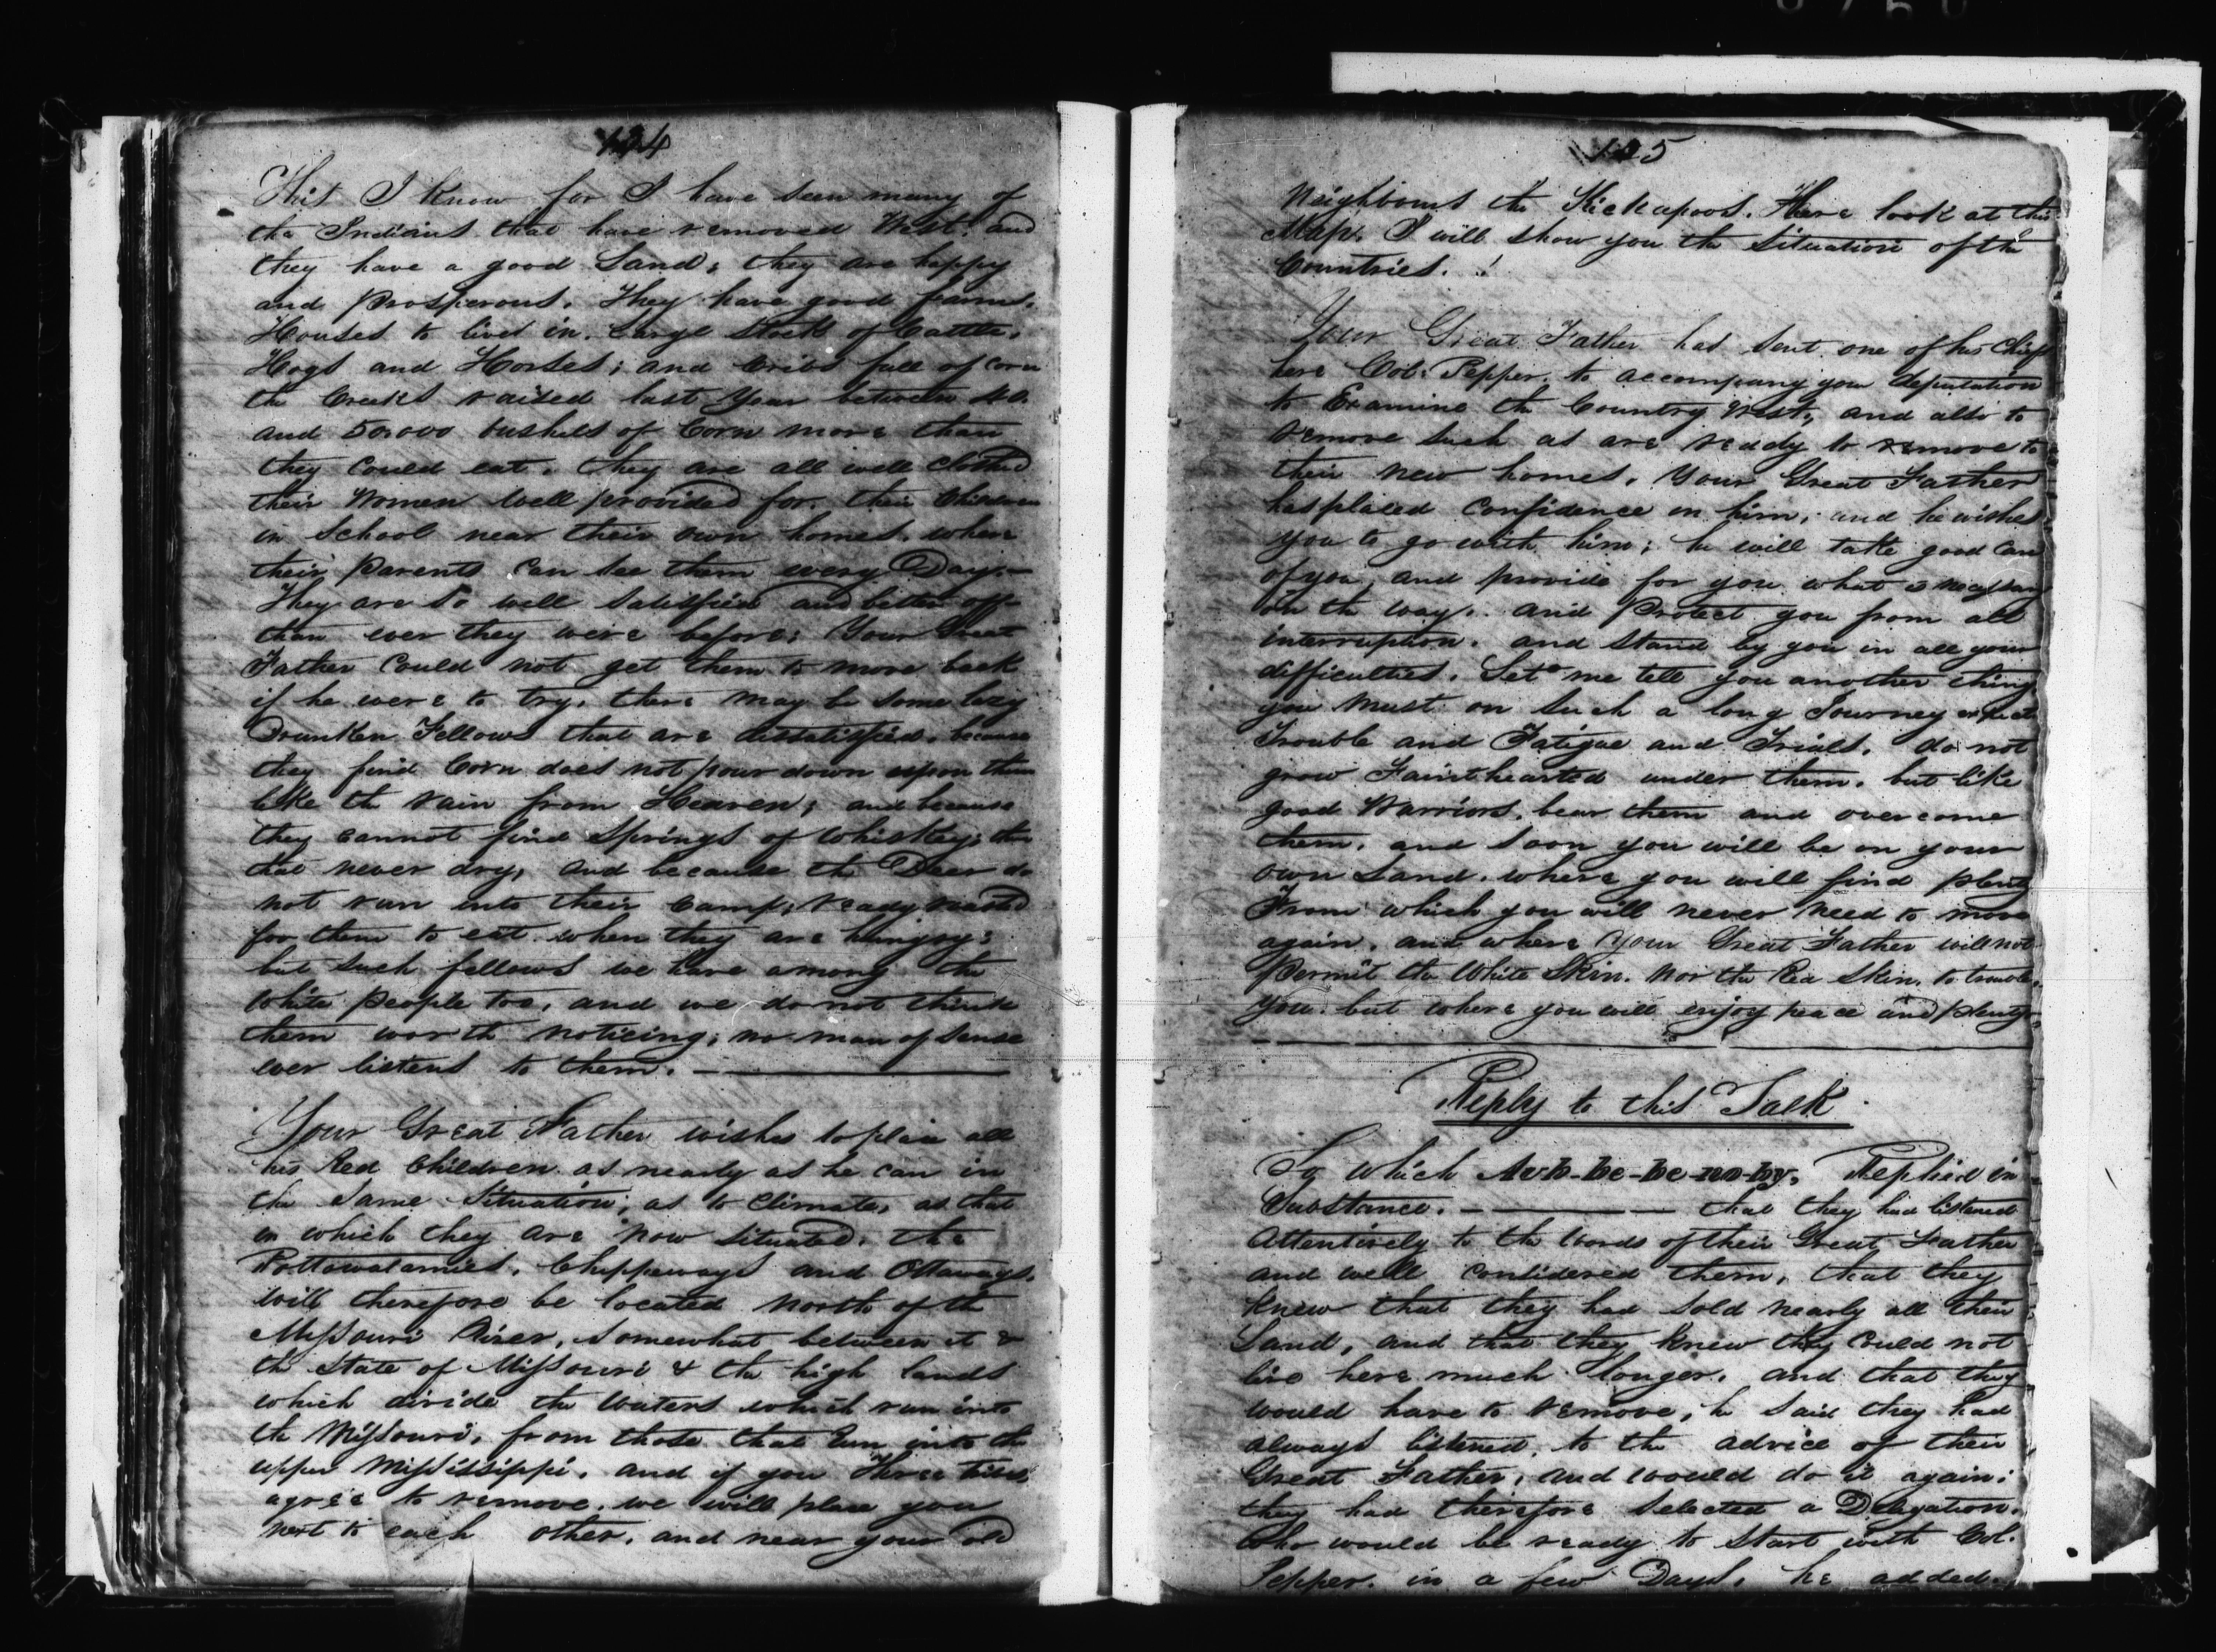 124
This I Know for I have seen many of
the Indians that have removed West. and
they have a good Land; they are happy
and Prosperous. They have good farms.
Houses to live in. Large stock of Cattle.
Hogs and Horses; and Cribs full of Corn
the Creeks raised last Year between 40.
and 50.000 bushels of Corn more than
they Could eat. they are all well Clothed
their Women Well provided for. their Children
in School near their own homes. where
their Parents Can see them every Day.—
They are so well satisfied and better off—
than ever they were before; Your Great
Father Could not get them to move back
if he were to try. there may be some lazy
Drunken Fellows that are dissatisfied. because
they find Corn does not pour down upon them
like the rain from Heaven; and because
they cannot find Springs of Whiskey;
that never dry, and because the Deer do
not run into their Camp; ready roasted
for them to eat when they are hungry;
but such fellows we have among the
White People too, and we do not think
them worth noticing; no man of sense
ever listens to them. —
Your Great Father wishes to place all
his Red Children as nearly as he can in
the Same Situation; as to Climate, as that
in which they are now Situated. the
Pottawatamies, Chippeways and Ottaways.
will therefore be located North of the
Missouri River, somewhat between it &
the State of Missouri & the high lands
which divide the Waters which run into
the Missouri, from those that run into the
upper Mississippi. and if you Three tribes
agree to remove. we will place you
next to each other, and near your old
125
Neighbours the Kickapoos. Here look at this
Map. I will show you the Situation of the
Countries.
Your Great Father has sent one of his Chiefs
here Col. Pepper, to accompany your deputation
to Examine the Country West, and also to
remove such as are ready to remove to
their new homes. Your Great Father
has placed Confidence in him, and he wishes
you to go with him; he will take good care
of you, and provide for you what is necessary
on the way. and Protect you from all
interruption. and stand by you in all your
difficulties. Let me tell you another thing
you must on such a long Journey expect
Trouble and Fatigue and Trials. do not
grow Fainthearted under them. but like
good Warriors, bear them and overcome
them, and soon you will be on your
own Land. where you will find plenty
From which you will never need to move
again, and where Your Great Father will not
Permit the White Skin. Nor the Red Skin, to trouble
you. but where you will enjoy peace and plenty.
Reply to this Talk
To which Aub-be-be-no-by. Replied in
Substance. — that they had listened
Attentively to the Words of their Great Father
and well considered them, that they
Knew that they had sold nearly all their
Land, and that they knew they could not
live here much longer. and that they
would have to remove, he said they had
always listened, to the advice of their
Great Father; and would do it again;
they had therefore selected a Delegation.
who would be ready to start with Col.
Pepper. in a few Days, he added.